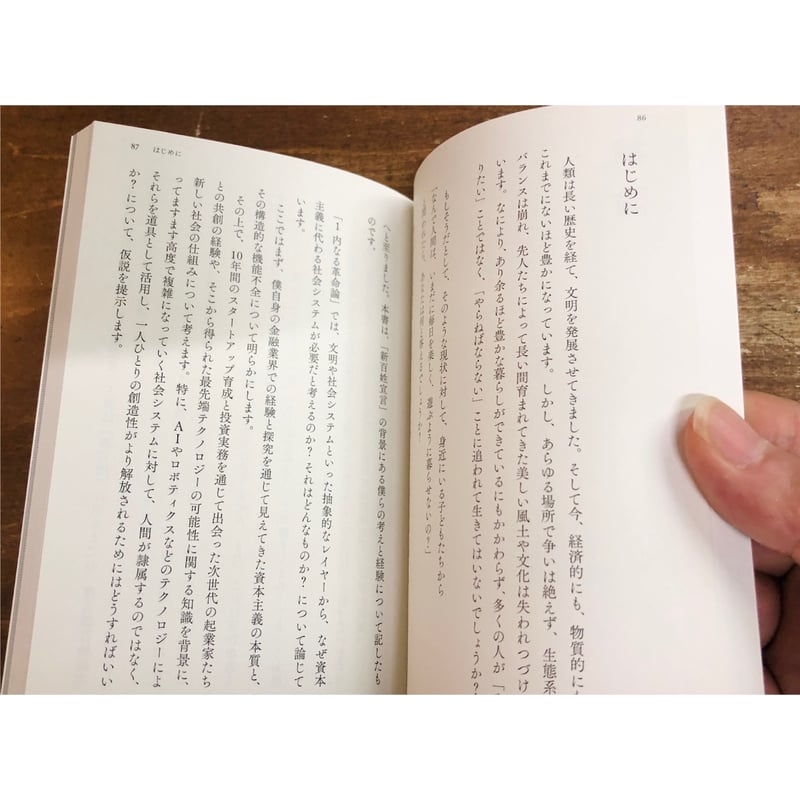 86
はじめに
人類は長い歴史を経て、文明を発展させてきました。そして今、経済的にも、物質的に
これまでにないほど豊かになっています。しかし、あらゆる場所で争いは絶えず、生態系
バランスは崩れ、先人たちによって長い間育まれてきた美しい風土や文化は失われつづけ
います。なにより、あり余るほど豊かな暮らしができているにもかかわらず、多くの人が「
りたい」ことではなく、「やらねばならない」ことに追われて生きてはいないでしょうか?
もしそうだとして、そのような現状に対して、身近にいる子どもたちから
「なんで人間は、いまだに毎日を楽しく、遊ぶように暮らせないのﾞ?」
と聞かれたら、あなたは何と答えるでしょうか?
87 はじめに
へと至りました。本書は、「新百姓宣言」の背景にある僕らの考えと経験について記したも
のです。
「1 内なる革命論」では、文明や社会システムといった抽象的なレイヤーから、なぜ資本
主義に代わる社会システムが必要だと考えるのか? それはどんなものか? について論じて
います。
ここではまず、僕自身の金融業界での経験と探究を通じて見えてきた資本主義の本質と、
その構造的な機能不全について明らかにします。
その上で、10年間のスタートアップ育成と投資実務を通じて出会った次世代の起業家たち
との共創の経験や、そこから得られた最先端テクノロジーの可能性に関する知識を背景に、
新しい社会の仕組みについて考えます。特に、AIやロボティクスなどのテクノロジーによ
ってますます高度で複雑になっていく社会システムに対して、人間が隷属するのではなく、
それらを道具として活用し、一人ひとりの創造性がより解放されるためにはどうすればいい
か? について、仮説を提示します。